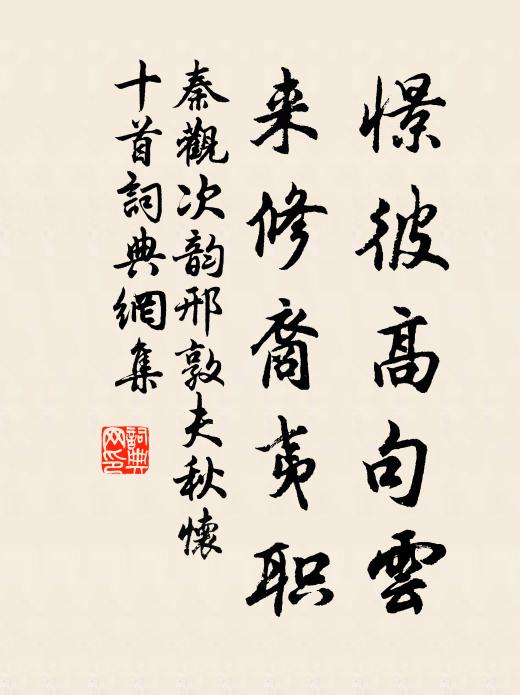 憬彼高句雲
来修裔夷职
秦觀次韵邢敦夫秋懷
十首詞典網集
詞典
网印